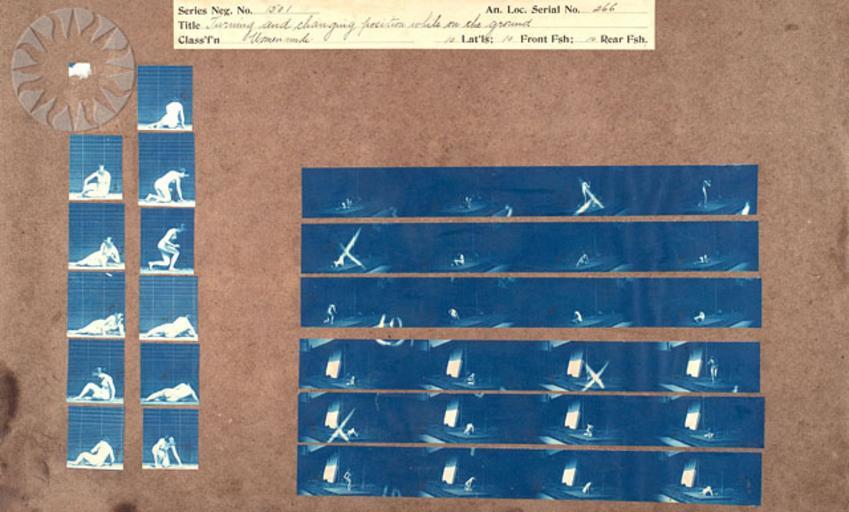 Series Neg. No. 1501 An. Loc. Serial No. 266
Title Turning and changing position while on the ground
Class'f'n Women nude Lat'ls; Front Fsh; Rear Fsh.